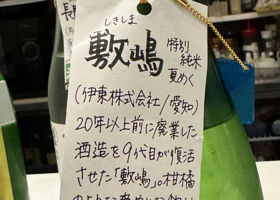 しきしま
敷嶋 特別純米 夏めく
(伊東株式会社/愛知)
20年以上前に廃業した
酒造を9代目が復活
させた「敷嶋」。柑橘